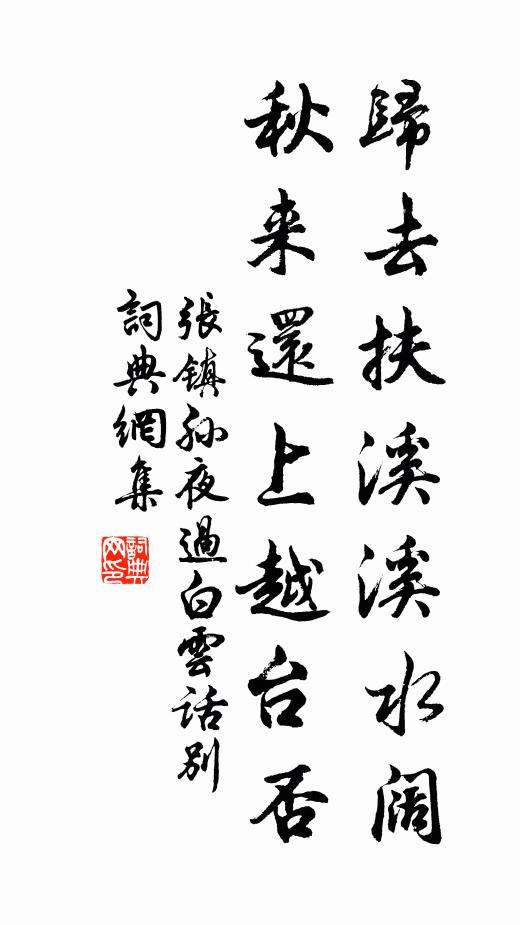 歸去扶溪溪水阔
秋来還上越台否
張鎮孙夜過白雲話别
詞典網集
詞典网印